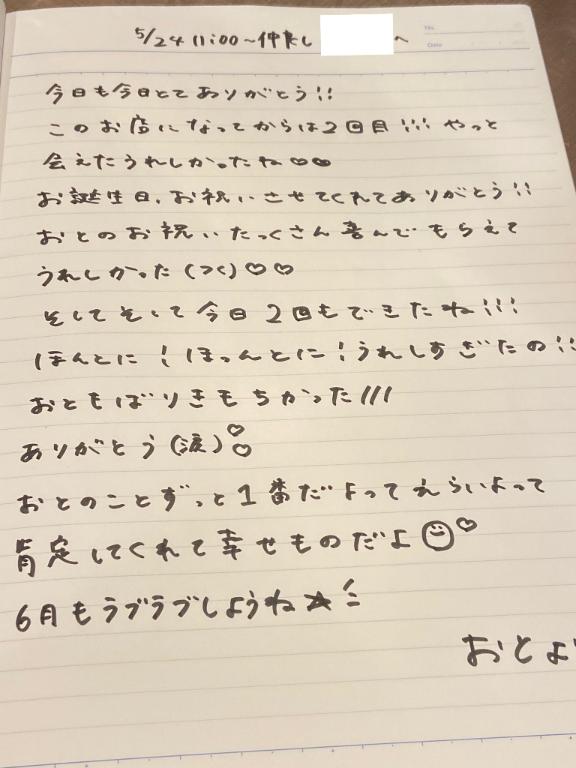 5/24 11:00〜仲良し へ
No.
Date
今日も今日とてありがとう!!
このお店になってからは2回目!!! やっと
会えたうれしかったね♡♡
お誕生日、お祝いさせてくれてありがとう!!
おとのお祝いたっくさん喜んでもらえて
うれしかった(つく)♡♡
そしてそして今日2回もできたね!!!
ほんとに!ほっんとに!うれしすぎたの!!
おともばりきもちかった!!!
ありがとう(涙)♡♡
おとのことずっと1番だよってえらいよって
肯定してくれて幸せものだよ☺♡
6月もラブラブしようね☆
おとよ